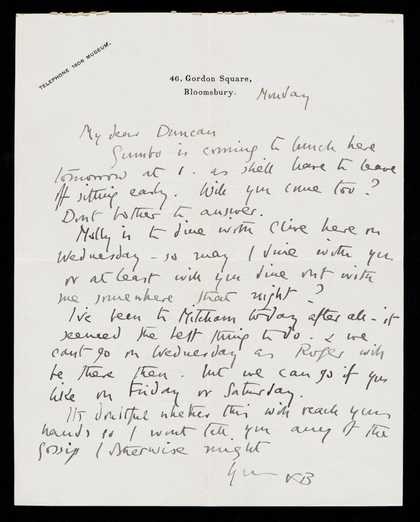 TELEPHONE 1608 MUSEUM.
46, Gordon Square,
Bloomsbury.
Monday
My dear Duncan
Gumbo is coming to lunch here
tomorrow at 1. as shell have to leave
off sitting early. Will you come too?
Dont bother to answer.
Molly is to dine with Clive here on
Wednesday - so may I dine with you
or at least will you dine out with
me somewhere that night?
I've been to Mitcham today after all - it
seemed the best thing to do. & we
cant go on Wednesday as Roger will
be there then. but we can go if you
like on Friday or Saturday.
Its doubtful whether this will reach your
hands so I wont tell you any of the
gossip I otherwise might
Your VB